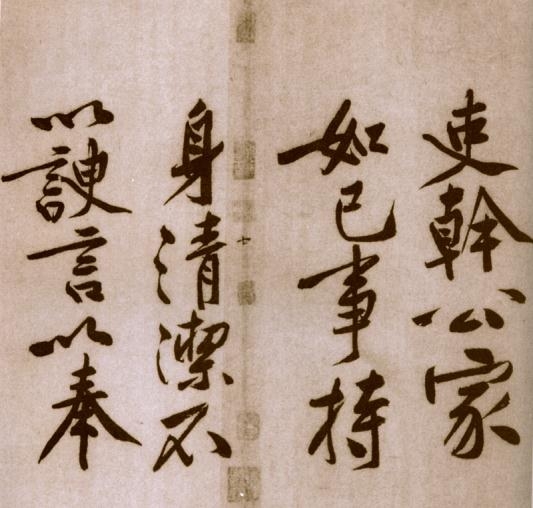 吏幹公家
如己事持
身清潔不
以諛言以奉